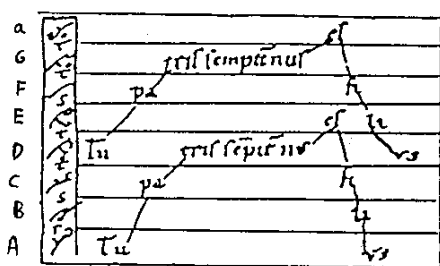 a
G
F
E
D
C
B
A
Tu pa tris sempit̄nus es fi li us
Tu pa tris sēpit̄nus es fi li us